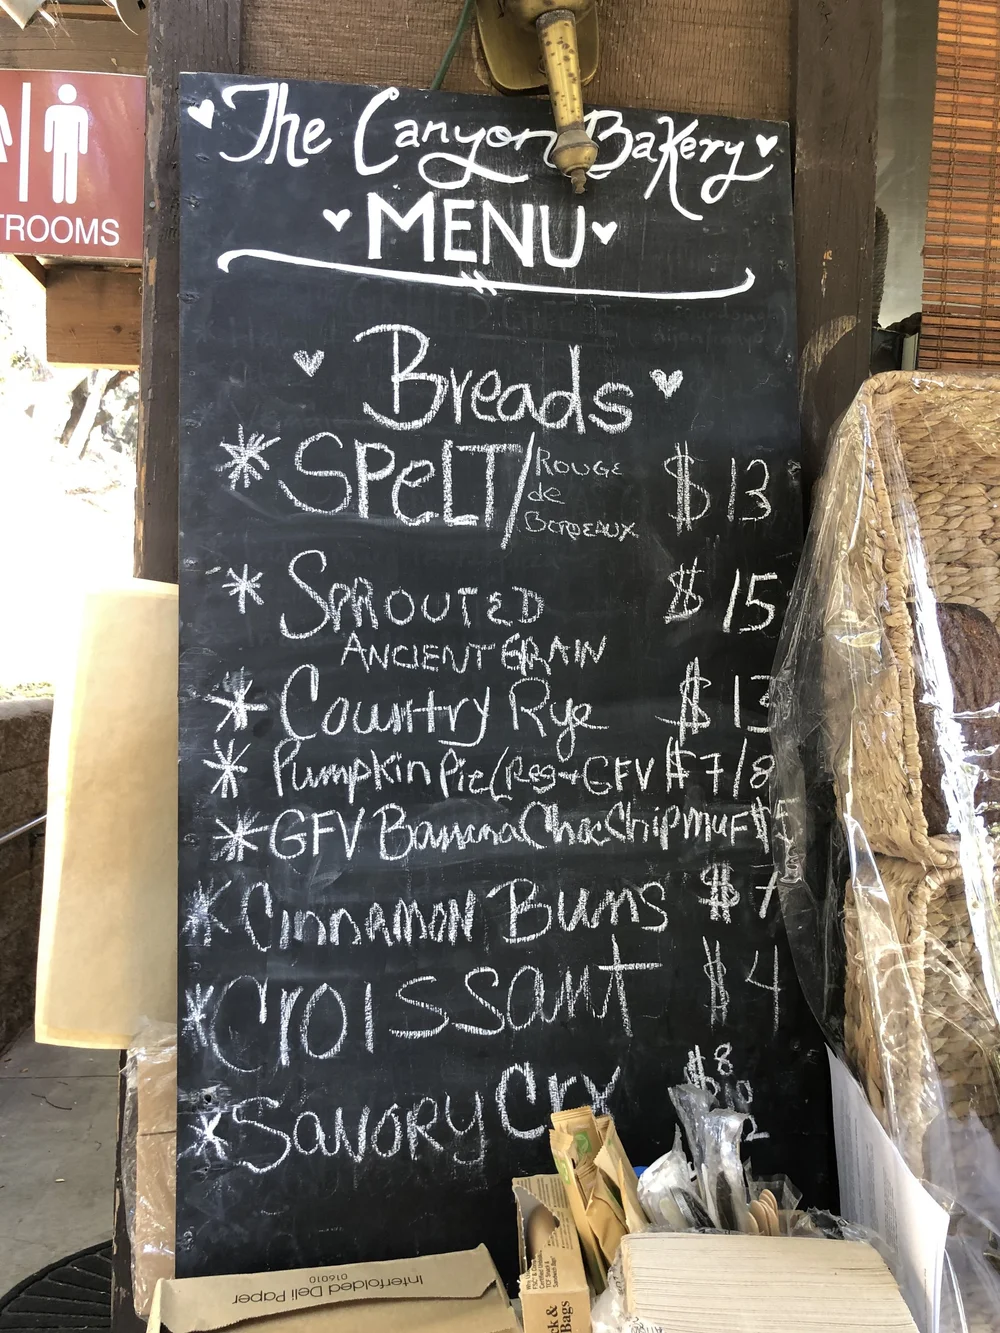 The Canyon Bakery
MENU
Breads
SPELT/ ROUGE de BORDEAUX $13
SPROUTED $15
ANCIENT GRAIN
Country Rye $13
Pumpkin Pie (Reg + GFV $7/8
GFV Banana Choc Chip MUF $5
CINNAMON BUNS $7
CROISSANT $4
SAVORY Cr
$8
TROOMS
Interfolded Deli Paper
016010
Bags